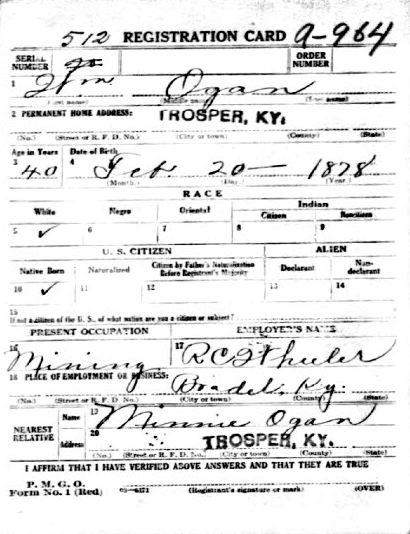 512 REGISTRATION CARD A-964
SERIAL NUMBER
ORDER NUMBER
1 Wm Ogan
(First name) (Middle name) (Last name)
2 PERMANENT HOME ADDRESS: TROSPER, KY.
(No.) (Street or R. F. D. No.) (City or town) (County) (State)
Age in Years Date of Birth
3 40 4 Feb. 20 — 1878
(Month.) (Day.) (Year.)
RACE
White Negro Oriental Indian
Citizen Noncitizen
5 ✓ 6 7 8 9
U. S. CITIZEN ALIEN
Native Born Naturalized Citizen by Father's Naturalization Before Registrant's Majority Declarant Non-declarant
10 ✓ 11 12 13 14
15
If not a citizen of the U. S., of what nation are you a citizen or subject?
PRESENT OCCUPATION EMPLOYER'S NAME
16 Mining 17 R C Wheeler
18 PLACE OF EMPLOYMENT OR BUSINESS:
Ky.
(No.) (Street or R. F. D. No.) (City or town) (County) (State)
NEAREST RELATIVE Name 19 Minnie Ogan
Address 20 TROSPER, KY.
(No.) (Street or R. F. D. No.) (City or town) (County) (State)
I AFFIRM THAT I HAVE VERIFIED ABOVE ANSWERS AND THAT THEY ARE TRUE
P. M. G. O.
Form No. 1 (Red) 03-6171 (Registrant's signature or mark) (OVER)